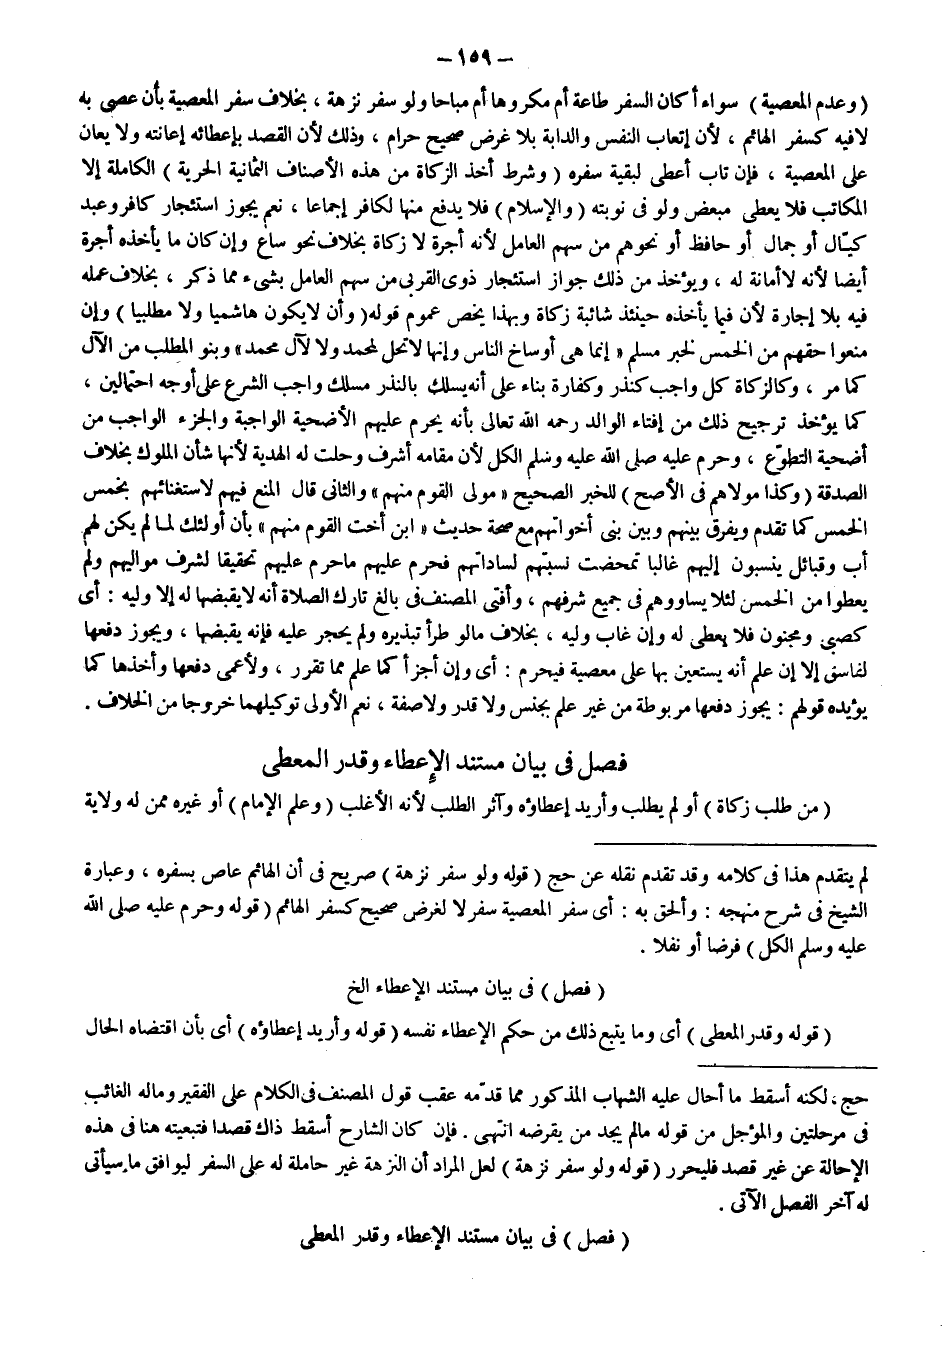 – ١٥٩ –
( وعدم المعصية ) سواء أكان السفر طاعة أم مكروها أم مباحا ولو سفر نزهة ، بخلاف سفر المعصية بأن عصى به
لافيه كسفر الهائم ، لأن إتعاب النفس والدابة بلا غرض صحيح حرام ، وذلك لأن القصد بإعطائه إعانته ولا يعان
على المعصية ، فإن تاب أعطى لبقية سفره ( وشرط أخذ الزكاة من هذه الأصناف الثمانية الحرية ) الكاملة إلا
المكاتب فلا يعطى مبعض ولو فى نوبته ( والإسلام ) فلا يدفع منها لكافر إجماعا ، نعم يجوز استئجار كافر وعبد
كيّال أو جمال أو حافظ أو نحوهم من سهم العامل لأنه أجرة لا زكاة بخلاف نحو ساع وإن كان ما يأخذه أجرة
أيضا لأنه لاأمانة له ، ويؤخذ من ذلك جواز استئجار ذوى القربى من سهم العامل بشىء مما ذكر ، بخلاف عمله
فيه بلا إجارة لأن فيما يأخذه حينئذ شائبة زكاة وبهذا يخص عموم قوله ( وأن لايكون هاشميا ولا مطلبيا ) وإن
منعوا حقهم من الخمس لخبر مسلم « إنما هى أوساخ الناس وإنها لاتحل لمحمد ولا لآل محمد» وبنو المطلب من الآل
كما مر ، وكالزكاة كل واجب كنذر وكفارة بناء على أنه يسلك بالنذر مسلك واجب الشرع على أوجه احتمالين ،
كما يؤخذ ترجيح ذلك من إفتاء الوالد رحمه الله تعالى بأنه يحرم عليهم الأضحية الواجبة والجزء الواجب من
أضحية التطوّع ، وحرم عليه صلى الله عليه وسلم الكل لأن مقامه أشرف وحلت له الهدية لأنها شأن الملوك بخلاف
الصدقة ( وكذا مولاهم فى الأصح ) للخبر الصحيح « مولى القوم منهم » والثانى قال المنع فيهم لاستغنائهم بخمس
الخمس كما تقدم ويفرق بينهم وبين بنى أخواتهم مع صحة حديث « ابن أخت القوم منهم » بأن أولئك لما لم يكن لهم
أب وقبائل ينسبون إليهم غالبا تمحضت نسبتهم لساداتهم فحرم عليهم ماحرم عليهم تحقيقا لشرف مواليهم ولم
يعطوا من الخمس لئلا يساووهم فى جميع شرفهم ، وأفتى المصنف فى بالغ تارك الصلاة أنه لايقبضها له إلا وليه : أى
كصبى ومجنون فلا يعطى له وإن غاب وليه ، بخلاف مالو طرأ تبذيره ولم يحجر عليه فإنه يقبضها ، ويجوز دفعها
لفاسق إلا إن علم أنه يستعين بها على معصية فيحرم : أى وإن أجزأ كما علم مما تقرر ، ولأعمى دفعها وأخذها كما
يؤيده قولهم : يجوز دفعها مربوطة من غير علم بجنس ولا قدر ولاصفة ، نعم الأولى توكيلهما خروجا من الخلاف .
فصل فى بيان مستند الإعطاء وقدر المعطى
( من طلب زكاة ) أو لم يطلب وأريد إعطاؤه وآثر الطلب لأنه الأغلب ( وعلم الإمام ) أو غيره ممن له ولاية
لم يتقدم هذا فى كلامه وقد تقدم نقله عن حج ( قوله ولو سفر نزهة ) صريح فى أن الهائم عاص بسفره ، وعبارة
الشيخ فى شرح منهجه : وألحق به : أى سفر المعصية سفر لا لغرض صحيح كسفر الهائم ( قوله وحرم عليه صلى الله
عليه وسلم الكل ) فرضا أو نفلا .
( فصل ) فى بيان مستند الإعطاء الخ
( قوله وقدر المعطى ) أى وما يتبع ذلك من حكم الإعطاء نفسه ( قوله وأريد إعطاؤه ) أى بأن اقتضاه الحال
حج ، لكنه أسقط ما أحال عليه الشهاب المذكور مما قدّمه عقب قول المصنف فى الكلام على الفقير وماله الغائب
فى مرحلتين والمؤجل من قوله مالم يجد من يقرضه انتهى . فإن كان الشارح أسقط ذاك قصدا فتبعيته هنا فى هذه
الإحالة عن غير قصد فليحرر ( قوله ولو سفر نزهة ) لعل المراد أن النزهة غير حاملة له على السفر ليوافق ما سيأتى
له آخر الفصل الآتى .
( فصل ) فى بيان مستند الإعطاء وقدر المعطى